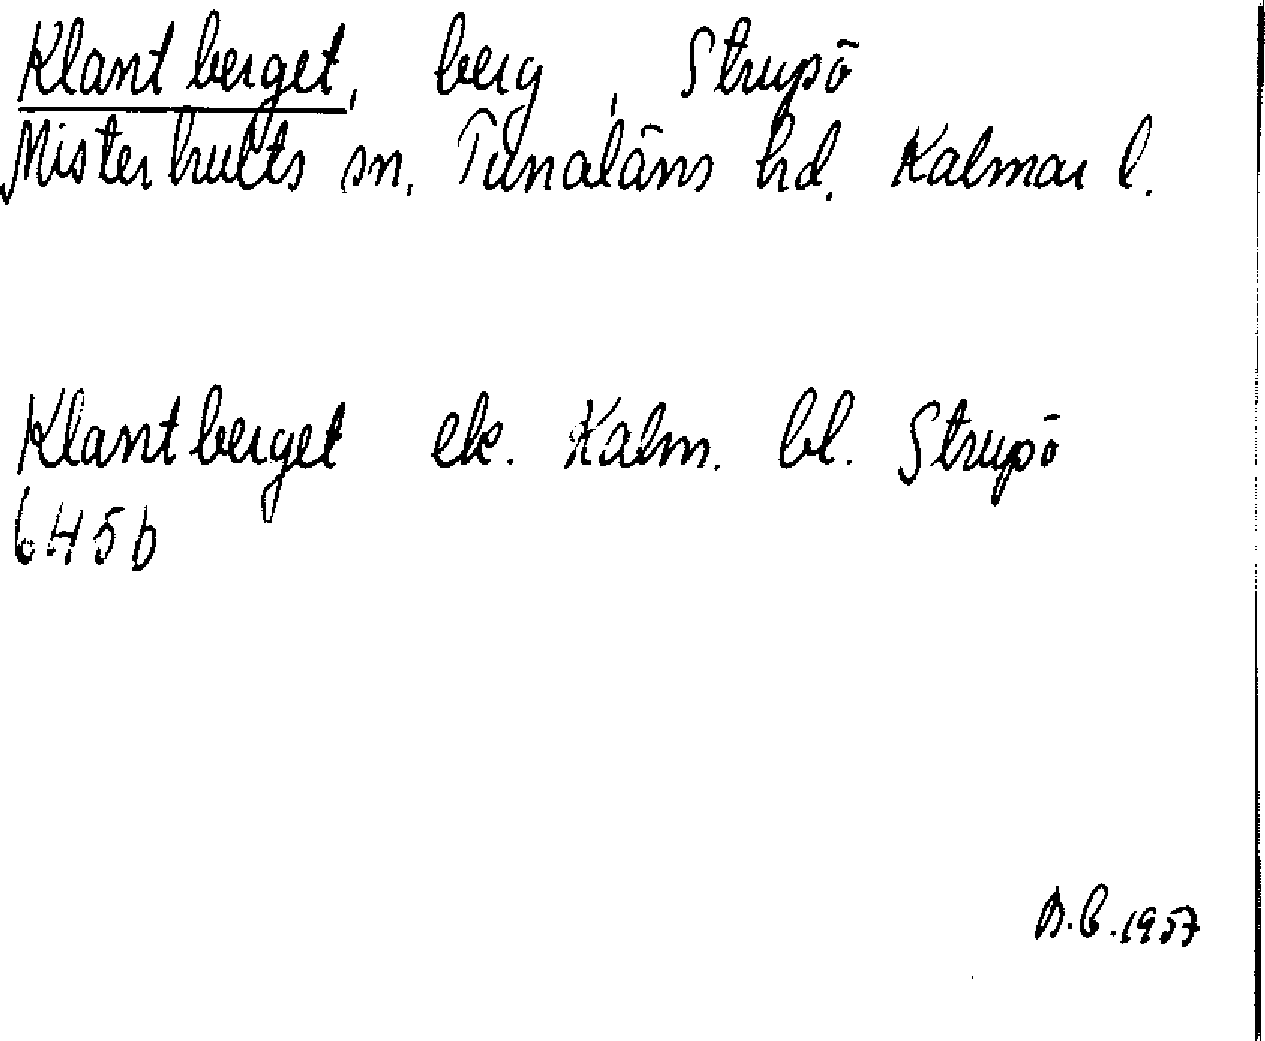 Klantberget, berg, Strupö
Misterhults sn. Tunaläns hd. Kalmar l.
Klantberget ek. Kalm. bl. Strupö
6456
B.C. 1957